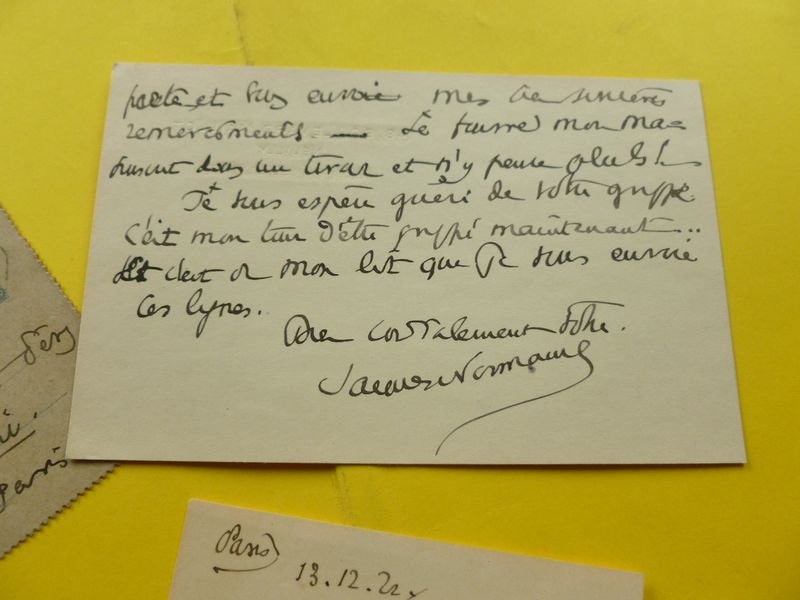 poète et vous envoie mes bien sincères
remerciements — Je fourre mon ma-
nuscrit dans un tiroir et n'y pense plus !
Je vous espère guéri de votre grippe.
C'est mon tour d'être grippé maintenant...
et c'est de mon lit que je vous envoie
ces lignes.
Bien cordialement vôtre.
Jacques Normand
Paris
Paris
13.12.22